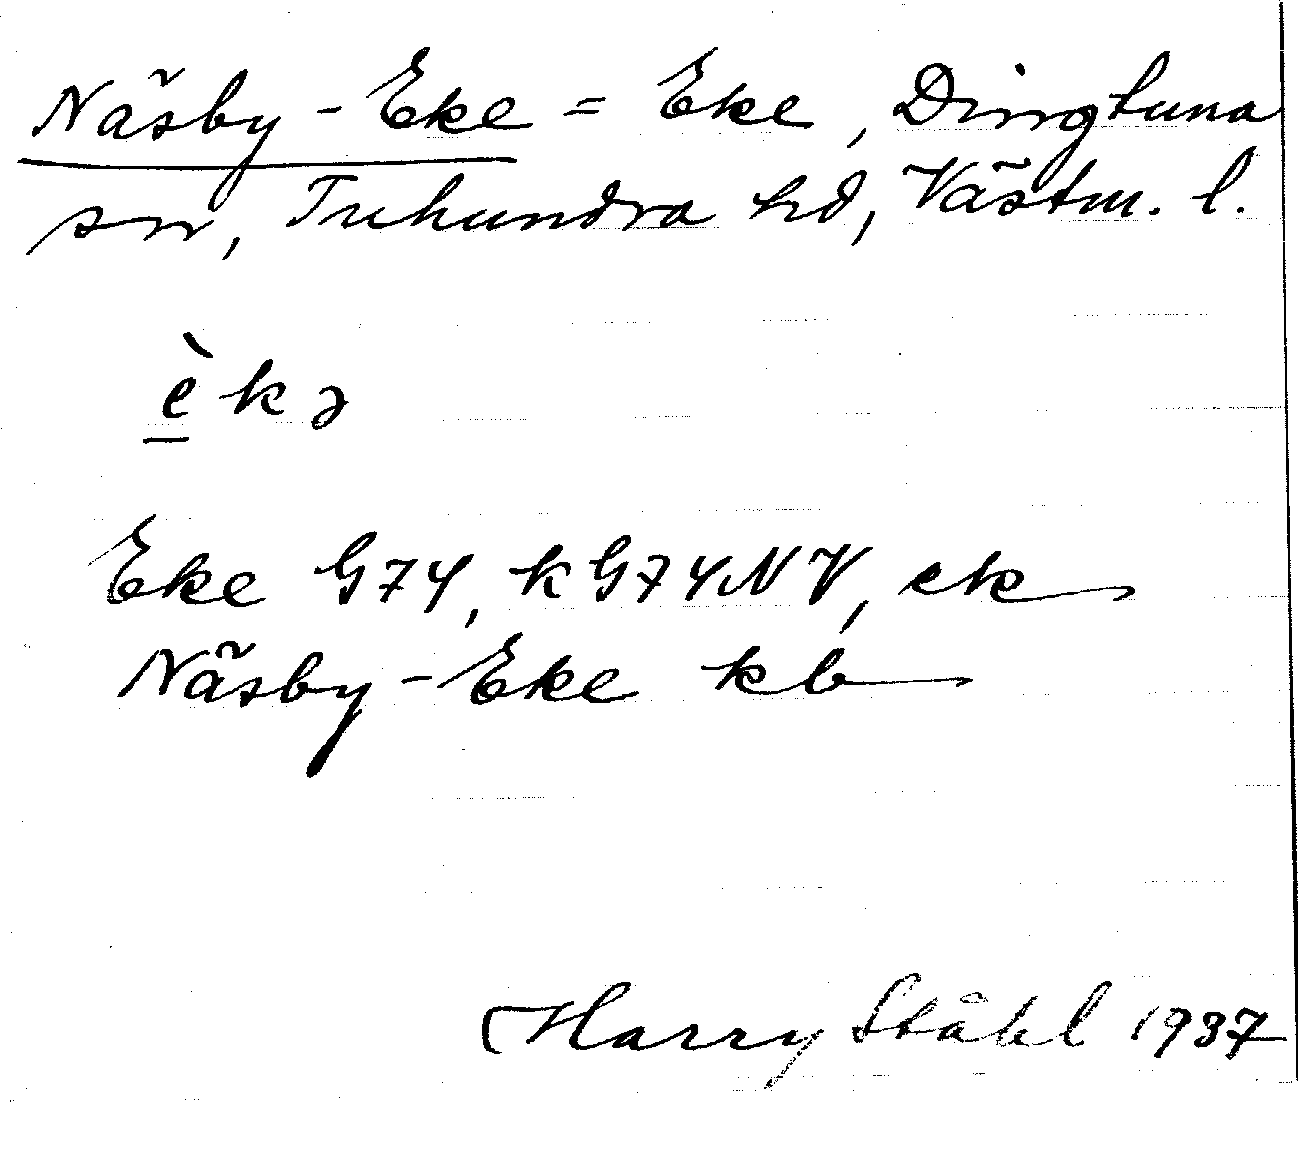 Näsby-Eke = Eke, Dingtuna
sn, Tuhundra hd, Västm. l.
èkə
Eke G74, k G74NV, ek
Näsby-Eke kb
Harry Ståhl 1937